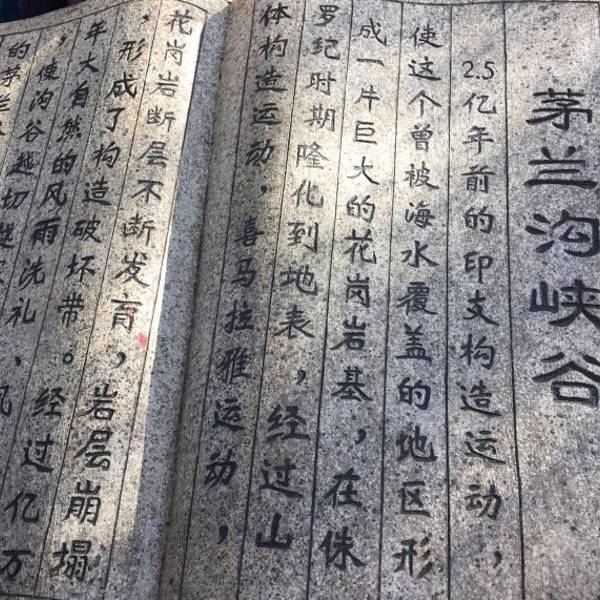 茅兰沟峡谷
2.5亿年前的印支构造运动，
使这个曾被海水覆盖的地区形
成一片巨大的花岗岩基，在侏
罗纪时期隆化到地表，经过山
体构造运动，喜马拉雅运动，
花岗岩断层不断发育，岩层崩塌
，形成了构造破坏带。经过亿万
年大自然的风雨洗礼，风
，使沟谷越切越
的茅兰